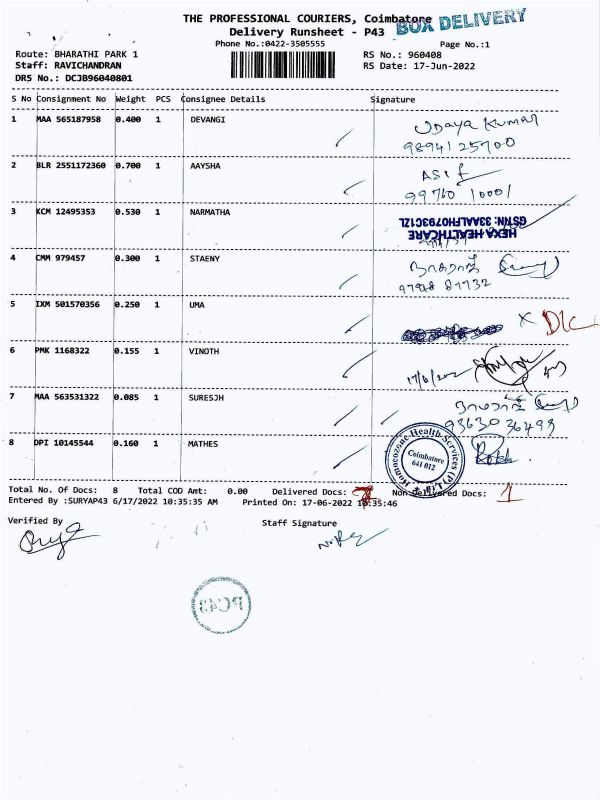 THE PROFESSIONAL COURIERS, Coimbatore
BOX DELIVERY
Delivery Runsheet - P43
Phone No.:0422-3505555
Page No.:1
Route: BHARATHI PARK 1
RS No.: 960408
Staff: RAVICHANDRAN
RS Date: 17-Jun-2022
DRS No.: DCJB96040801
S No Consignment No Weight PCS Consignee Details Signature
1 MAA 565187958 0.400 1 DEVANGI
Udaya Kumar
9894125700
2 BLR 2551172360 0.700 1 AAYSHA
Asif
99760 10001
3 KCM 12495353 0.530 1 NARMATHA
HEXA HEALTHCARE
GSTIN: 33AALFH0793C1ZL
4 CMM 979457 0.300 1 STAENY
நாகராஜ்
97918 81732
5 IXM 501570356 0.250 1 UMA
X DLC
6 PMK 1168322 0.155 1 VINOTH
17/6/2022
7 MAA 563531322 0.085 1 SURESJH
93630 36493
8 DPI 10145544 0.160 1 MATHES
Homoeozone Health Services (P) Ltd
Coimbatore
641 012
Total No. Of Docs: 8 Total COD Amt: 0.00 Delivered Docs: 7 Non-Delivered Docs: 1
Entered By :SURYAP43 6/17/2022 10:35:35 AM Printed On: 17-06-2022 10:35:46
Verified By
Staff Signature
PC43